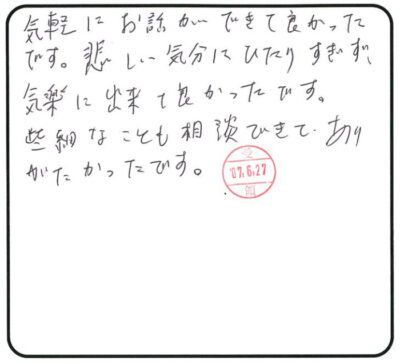 気軽にお話ができて良かった
です。悲しい気分にひたりすぎず、
気楽に出来て良かったです。
些細なことも相談できて、あり
がたかったです。
受
'07.6.27